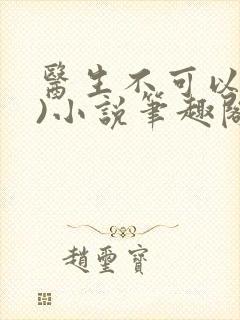 醫生不可以
)小說筆趣閣
趙璽寶